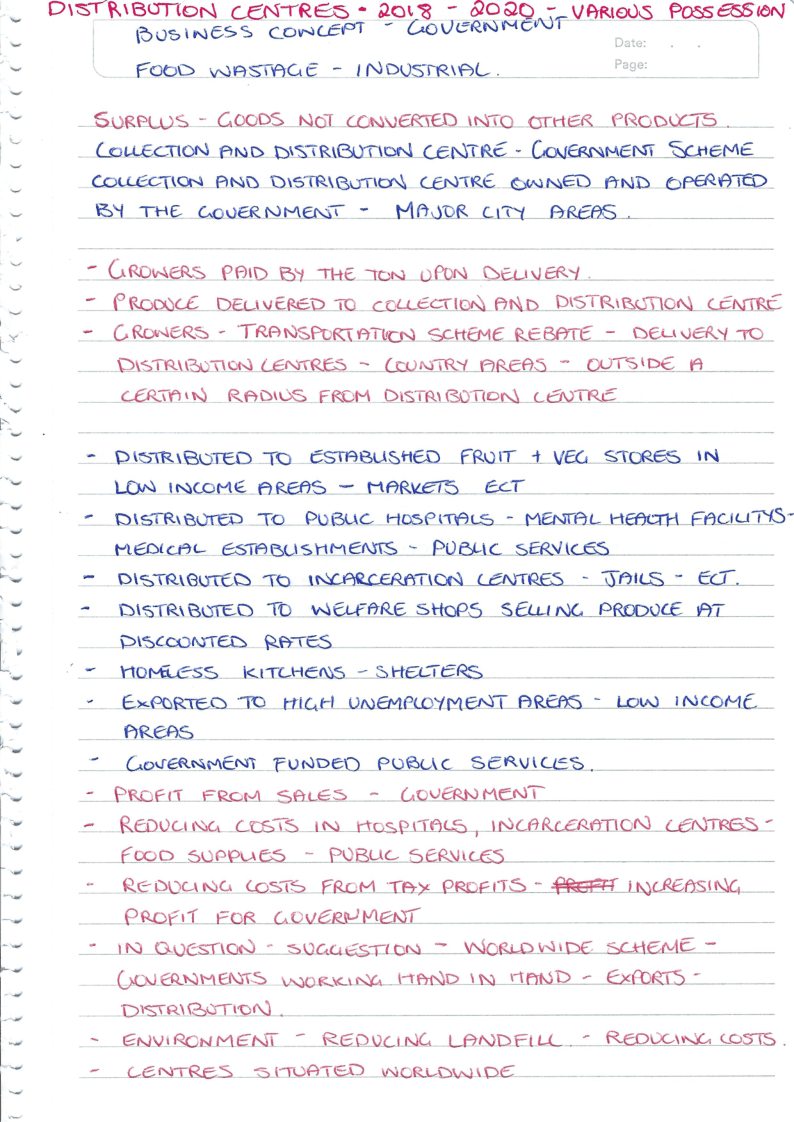 DISTRIBUTION CENTRES - 2018 - 2020 - VARIOUS POSSESSION
BUSINESS CONCEPT - GOVERNMENT
Date: . .
FOOD WASTAGE - INDUSTRIAL.
Page:
SURPLUS - GOODS NOT CONVERTED INTO OTHER PRODUCTS.
COLLECTION AND DISTRIBUTION CENTRE - GOVERNMENT SCHEME
COLLECTION AND DISTRIBUTION CENTRE OWNED AND OPERATED
BY THE GOVERNMENT - MAJOR CITY AREAS.
- GROWERS PAID BY THE TON UPON DELIVERY.
- PRODUCE DELIVERED TO COLLECTION AND DISTRIBUTION CENTRE
- GROWERS - TRANSPORTATION SCHEME REBATE - DELIVERY TO
DISTRIBUTION CENTRES - COUNTRY AREAS - OUTSIDE A
CERTAIN RADIUS FROM DISTRIBUTION CENTRE
- DISTRIBUTED TO ESTABLISHED FRUIT + VEG STORES IN
LOW INCOME AREAS - MARKETS ECT
- DISTRIBUTED TO PUBLIC HOSPITALS - MENTAL HEALTH FACILITYS -
MEDICAL ESTABLISHMENTS - PUBLIC SERVICES
- DISTRIBUTED TO INCARCERATION CENTRES - JAILS - ECT.
- DISTRIBUTED TO WELFARE SHOPS SELLING PRODUCE AT
DISCOUNTED RATES
- HOMELESS KITCHENS - SHELTERS
- EXPORTED TO HIGH UNEMPLOYMENT AREAS - LOW INCOME
AREAS
- GOVERNMENT FUNDED PUBLIC SERVICES.
- PROFIT FROM SALES - GOVERNMENT
- REDUCING COSTS IN HOSPITALS, INCARCERATION CENTRES -
FOOD SUPPLIES - PUBLIC SERVICES
- REDUCING COSTS FROM TAX PROFITS - PROFIT INCREASING
PROFIT FOR GOVERNMENT
- IN QUESTION - SUGGESTION - WORLDWIDE SCHEME -
GOVERNMENTS WORKING HAND IN HAND - EXPORTS -
DISTRIBUTION.
- ENVIRONMENT - REDUCING LANDFILL. - REDUCING COSTS.
- CENTRES SITUATED WORLDWIDE